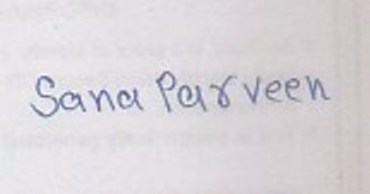 Sana Parveen